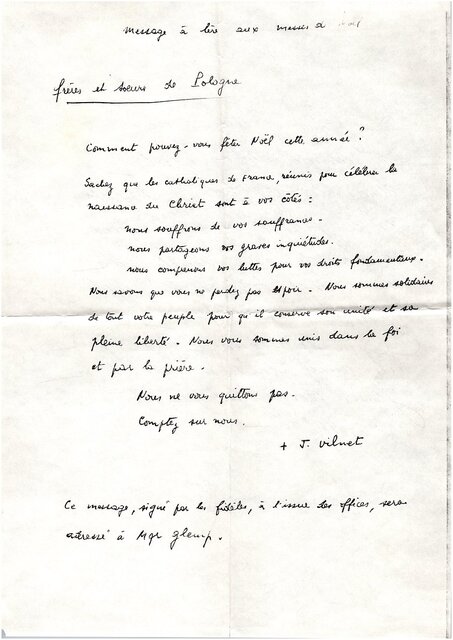 Message à lire aux messes de Noël
frères et sœurs de Pologne
Comment pouvez-vous fêter Noël cette année ?
Sachez que les catholiques de France, réunis pour célébrer la
naissance du Christ sont à vos côtés :
nous souffrons de vos souffrances.
nous partageons vos graves inquiétudes.
nous comprenons vos luttes pour vos droits fondamentaux.
Nous savons que vous ne perdez pas espoir. Nous sommes solidaires
de tout votre peuple pour qu'il conserve son unité et sa
pleine liberté. Nous vous sommes unis dans la foi
et par la prière.
Nous ne vous quittons pas.
Comptez sur nous.
+ J. Vilnet
Ce message, signé par les fidèles, à l'issue des offices, sera
adressé à Mgr Glemp.